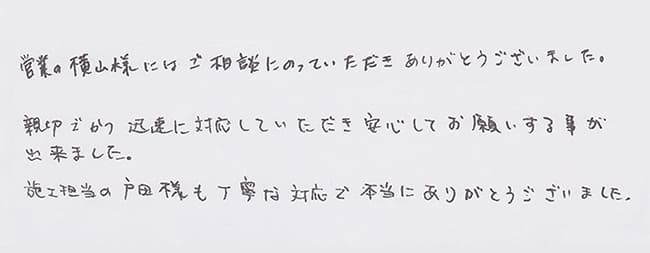 営業の横山様にはご相談にのっていただきありがとうございました。
親切でかつ迅速に対応していただき安心してお願いする事が
出来ました。
施工担当の戸田様も丁寧な対応で本当にありがとうございました。